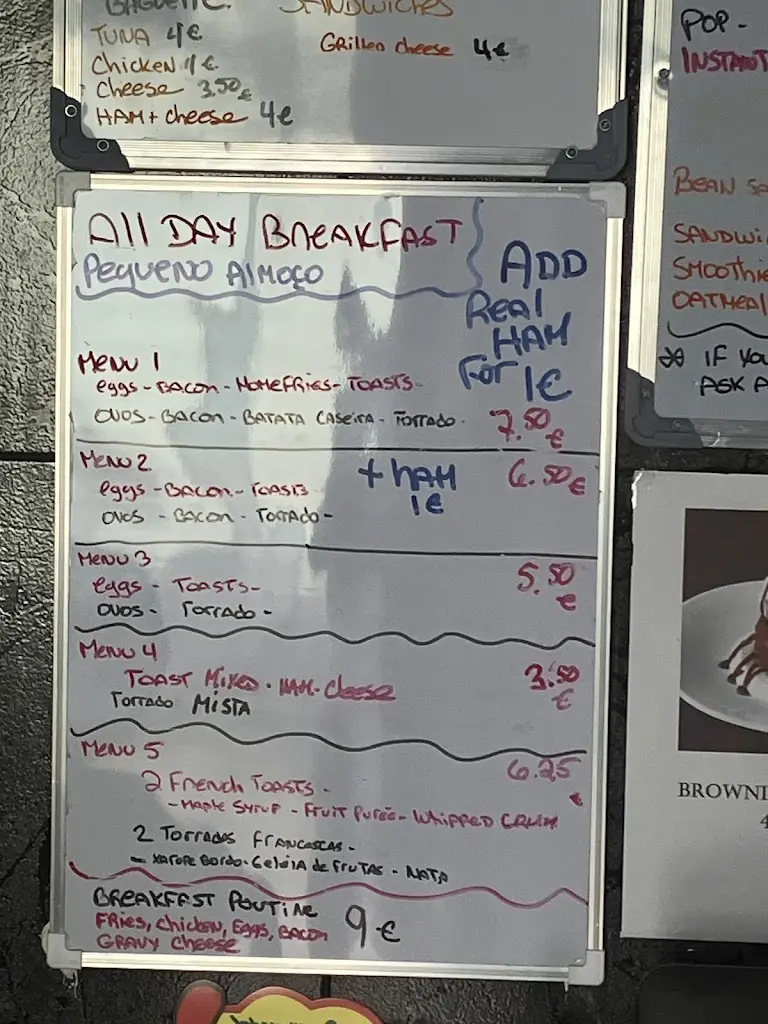 BAGUETTE.
TUNA 4€
Chicken 4€
Cheese 3.50€
HAM + cheese 4€
SANDWICHES
Grilled cheese 4€
All DAY BREAKFAST
PEQUENO AlMOÇO
ADD
Real
HAM
FOR 1€
MENU 1
eggs - BACON - HOMEFRIES - TOASTS
OVOS - BACON - BATATA CASEIRA - TORRADO. 7.50 €
MENU 2
eggs - BACON - TOASTS
OVOS - BACON - TORRADO -
+ HAM
1€
6.50 €
MENU 3
eggs - TOASTS -
OVOS - TORRADO -
5.50 €
MENU 4
TOAST MIXED. HAM - cheese
TORRADO MISTA
3.50 €
MENU 5
6.25 €
2 French TOASTS -
- Maple SYRUP - FRUIT PURÉE - WHIPPED CREAM
2 TORRADAS FRANCESCAS -
- XAROPE BORDO - Geleia de FRUTAS - NATA
BREAKFAST POUTINE
FRies, chicken, Eggs, BACON
GRAVY cheese
9€
POP -
INSTANT
BEAN
SANDWI
SMOOTHIE
OATMEAL
IF YOU
ASK
BROWNI
4